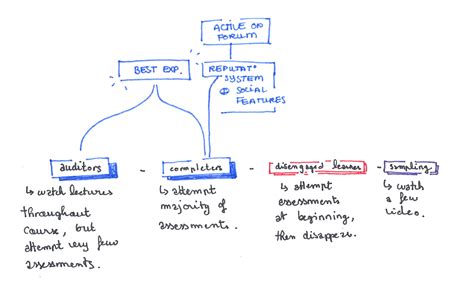 ACTIVE ON
FORUM
BEST EXP.
REPUTAT°
SYSTEM
⊕ SOCIAL
FEATURES
auditors - completers - disengaged learner - sampling
↳ watch lectures
throughout
course, but
attempt very few
assessments.
↳ attempt
majority of
assessments.
↳ attempt
assessments
at beginning,
then disappear.
↳ watch
a few
video.